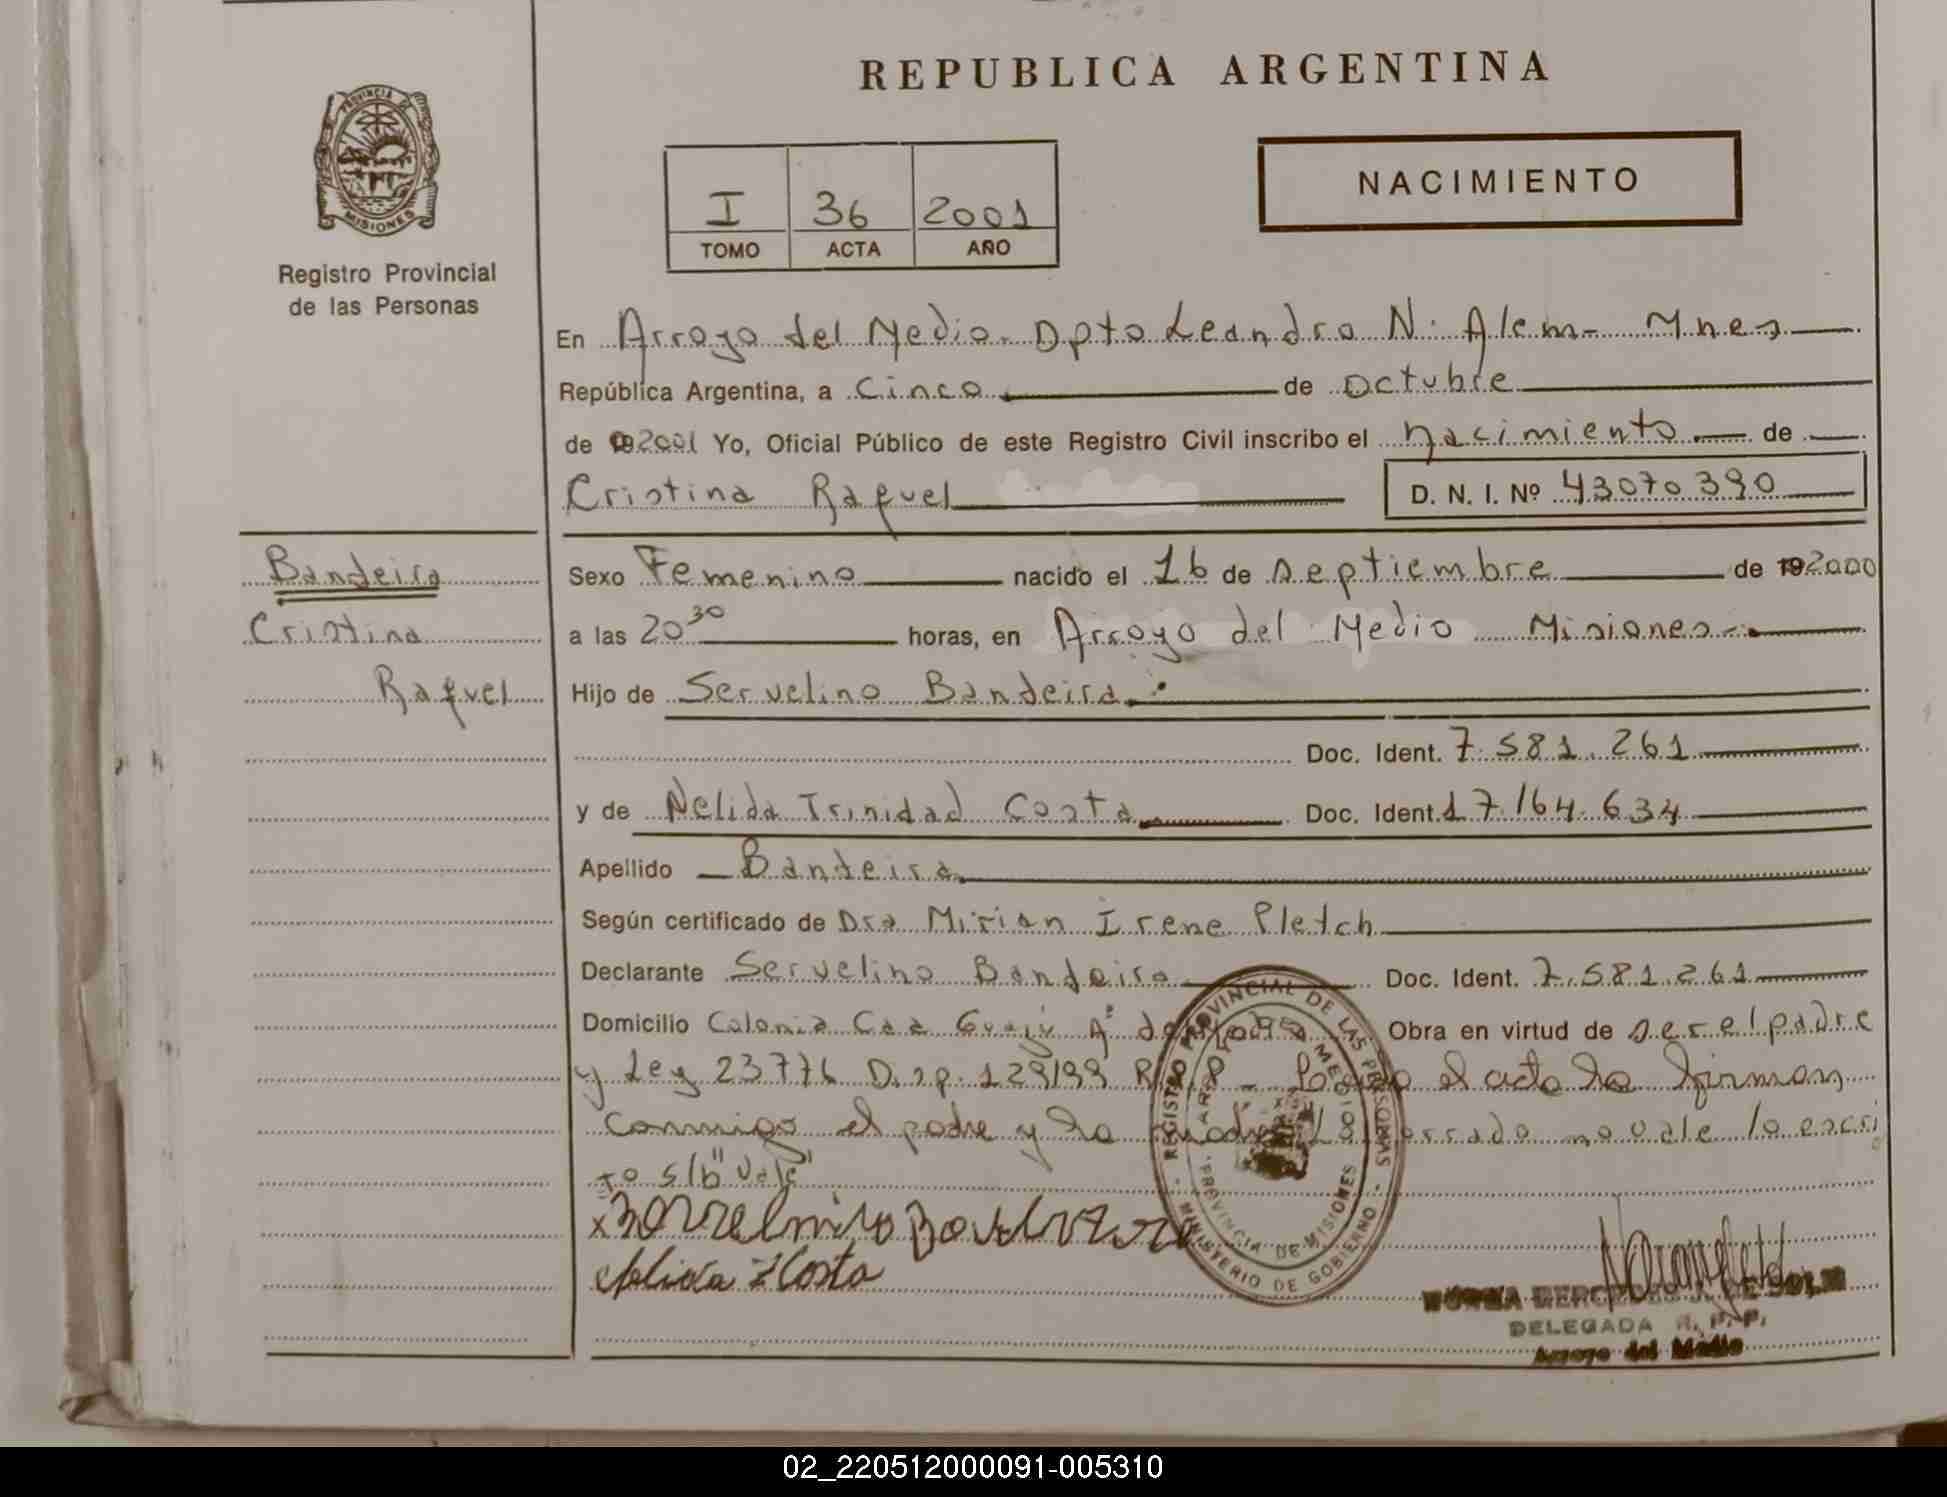 REPUBLICA ARGENTINA
PROVINCIA DE
MISIONES
Registro Provincial
de las Personas
I 36 2001
TOMO ACTA AÑO
NACIMIENTO
En Arroyo del Medio. Dpto Leandro N. Alem - Mnes
República Argentina, a Cinco de Octubre
de 2001 Yo, Oficial Público de este Registro Civil inscribo el nacimiento de
Cristina Raquel D. N. I. Nº 43070390
Bandeira
Cristina
Raquel
Sexo Femenino nacido el 16 de septiembre de 192000
a las 20 30 horas, en Arroyo del Medio Misiones
Hijo de Servelino Bandeira
Doc. Ident. 7.581.261
y de Nelida Trinidad Costa Doc. Ident. 17.164.634
Apellido Bandeira
Según certificado de Dra Mirian Irene Pletch
Declarante Servelino Bandeira Doc. Ident. 7.581.261
Domicilio Colonia Caa Aº del Medio Obra en virtud de ser el padre
y Ley 23776 Disp. 129/99 R.P.P - el acta la firman
conmigo el padre y la madre Lo borrado no vale lo escri
to s/b "Vale"
Nelida T Costa
REGISTRO PROVINCIAL DE LAS PERSONAS
MINISTERIO DE GOBIERNO
ARROYO DEL MEDIO
PROVINCIA DE MISIONES
NORMA MERCEDES
DELEGADA R. P. P.
Arroyo del Medio
02_220512000091-005310